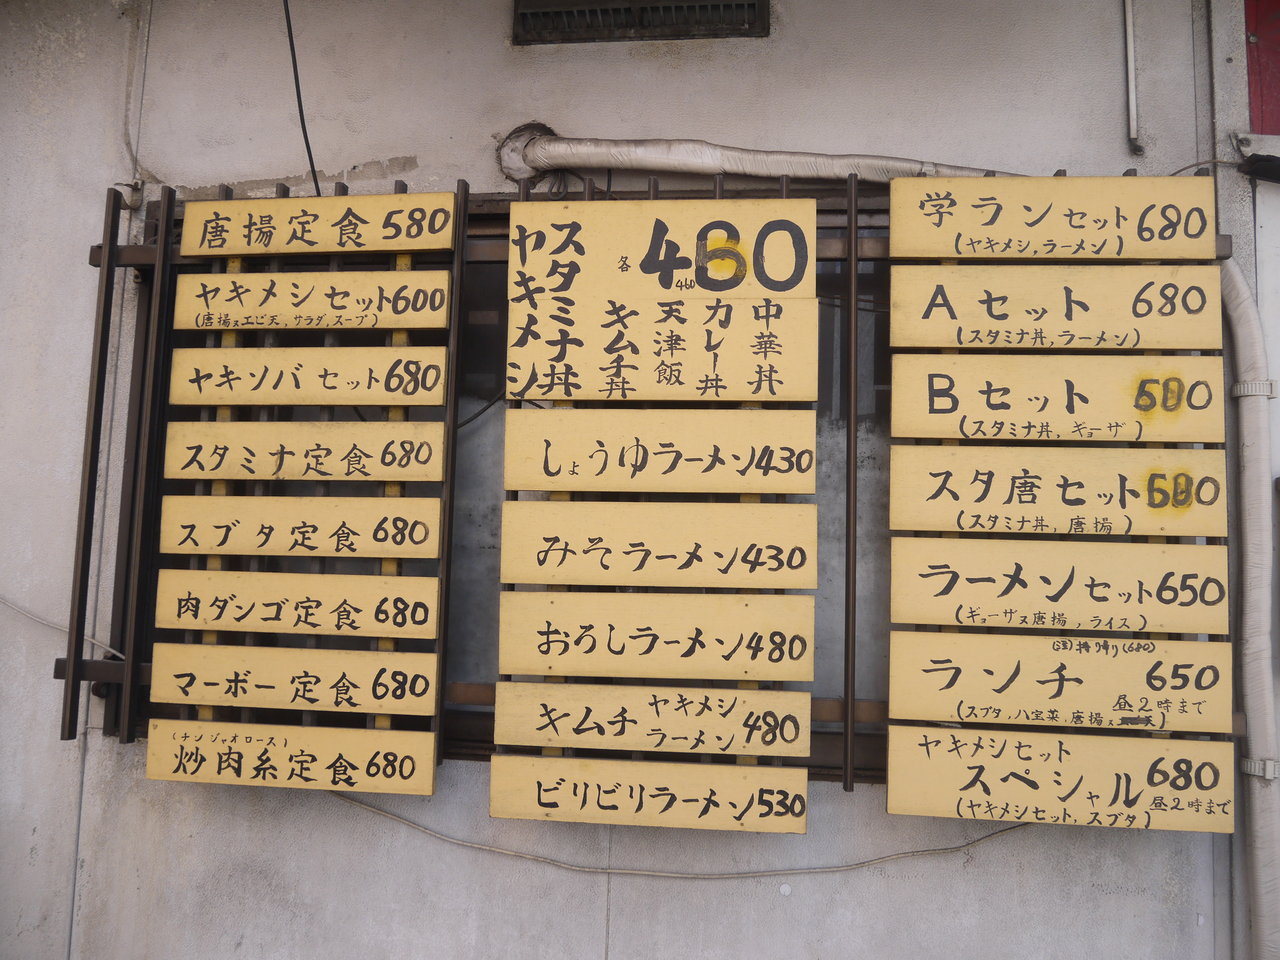 唐揚定食 580
ヤキメシセット600
(唐揚ヌエビ天,サラダ,スープ)
ヤキソバセット680
スタミナ定食680
スブタ定食680
肉ダンゴ定食680
マーボー定食680
(チンジャオロース)
炒肉糸定食680
スタミナ丼
ヤキメシ
各 480
460
中華丼
カレー丼
天津飯
キムチ丼
しょうゆラーメン430
みそラーメン430
おろしラーメン480
キムチ ヤキメシ ラーメン 480
ビリビリラーメン530
学ランセット680
(ヤキメシ,ラーメン)
Aセット 680
(スタミナ丼,ラーメン)
Bセット 580
(スタミナ丼,ギョーザ)
スタ唐セット580
(スタミナ丼,唐揚)
ラーメンセット650
(ギョーザヌ唐揚,ライス)
(注)持ち帰り(680)
ランチ 650
昼2時まで
(スブタ,八宝菜,唐揚ヌ
ヤキメシセット
スペシャル 680
昼2時まで
(ヤキメシセット,スブタ)